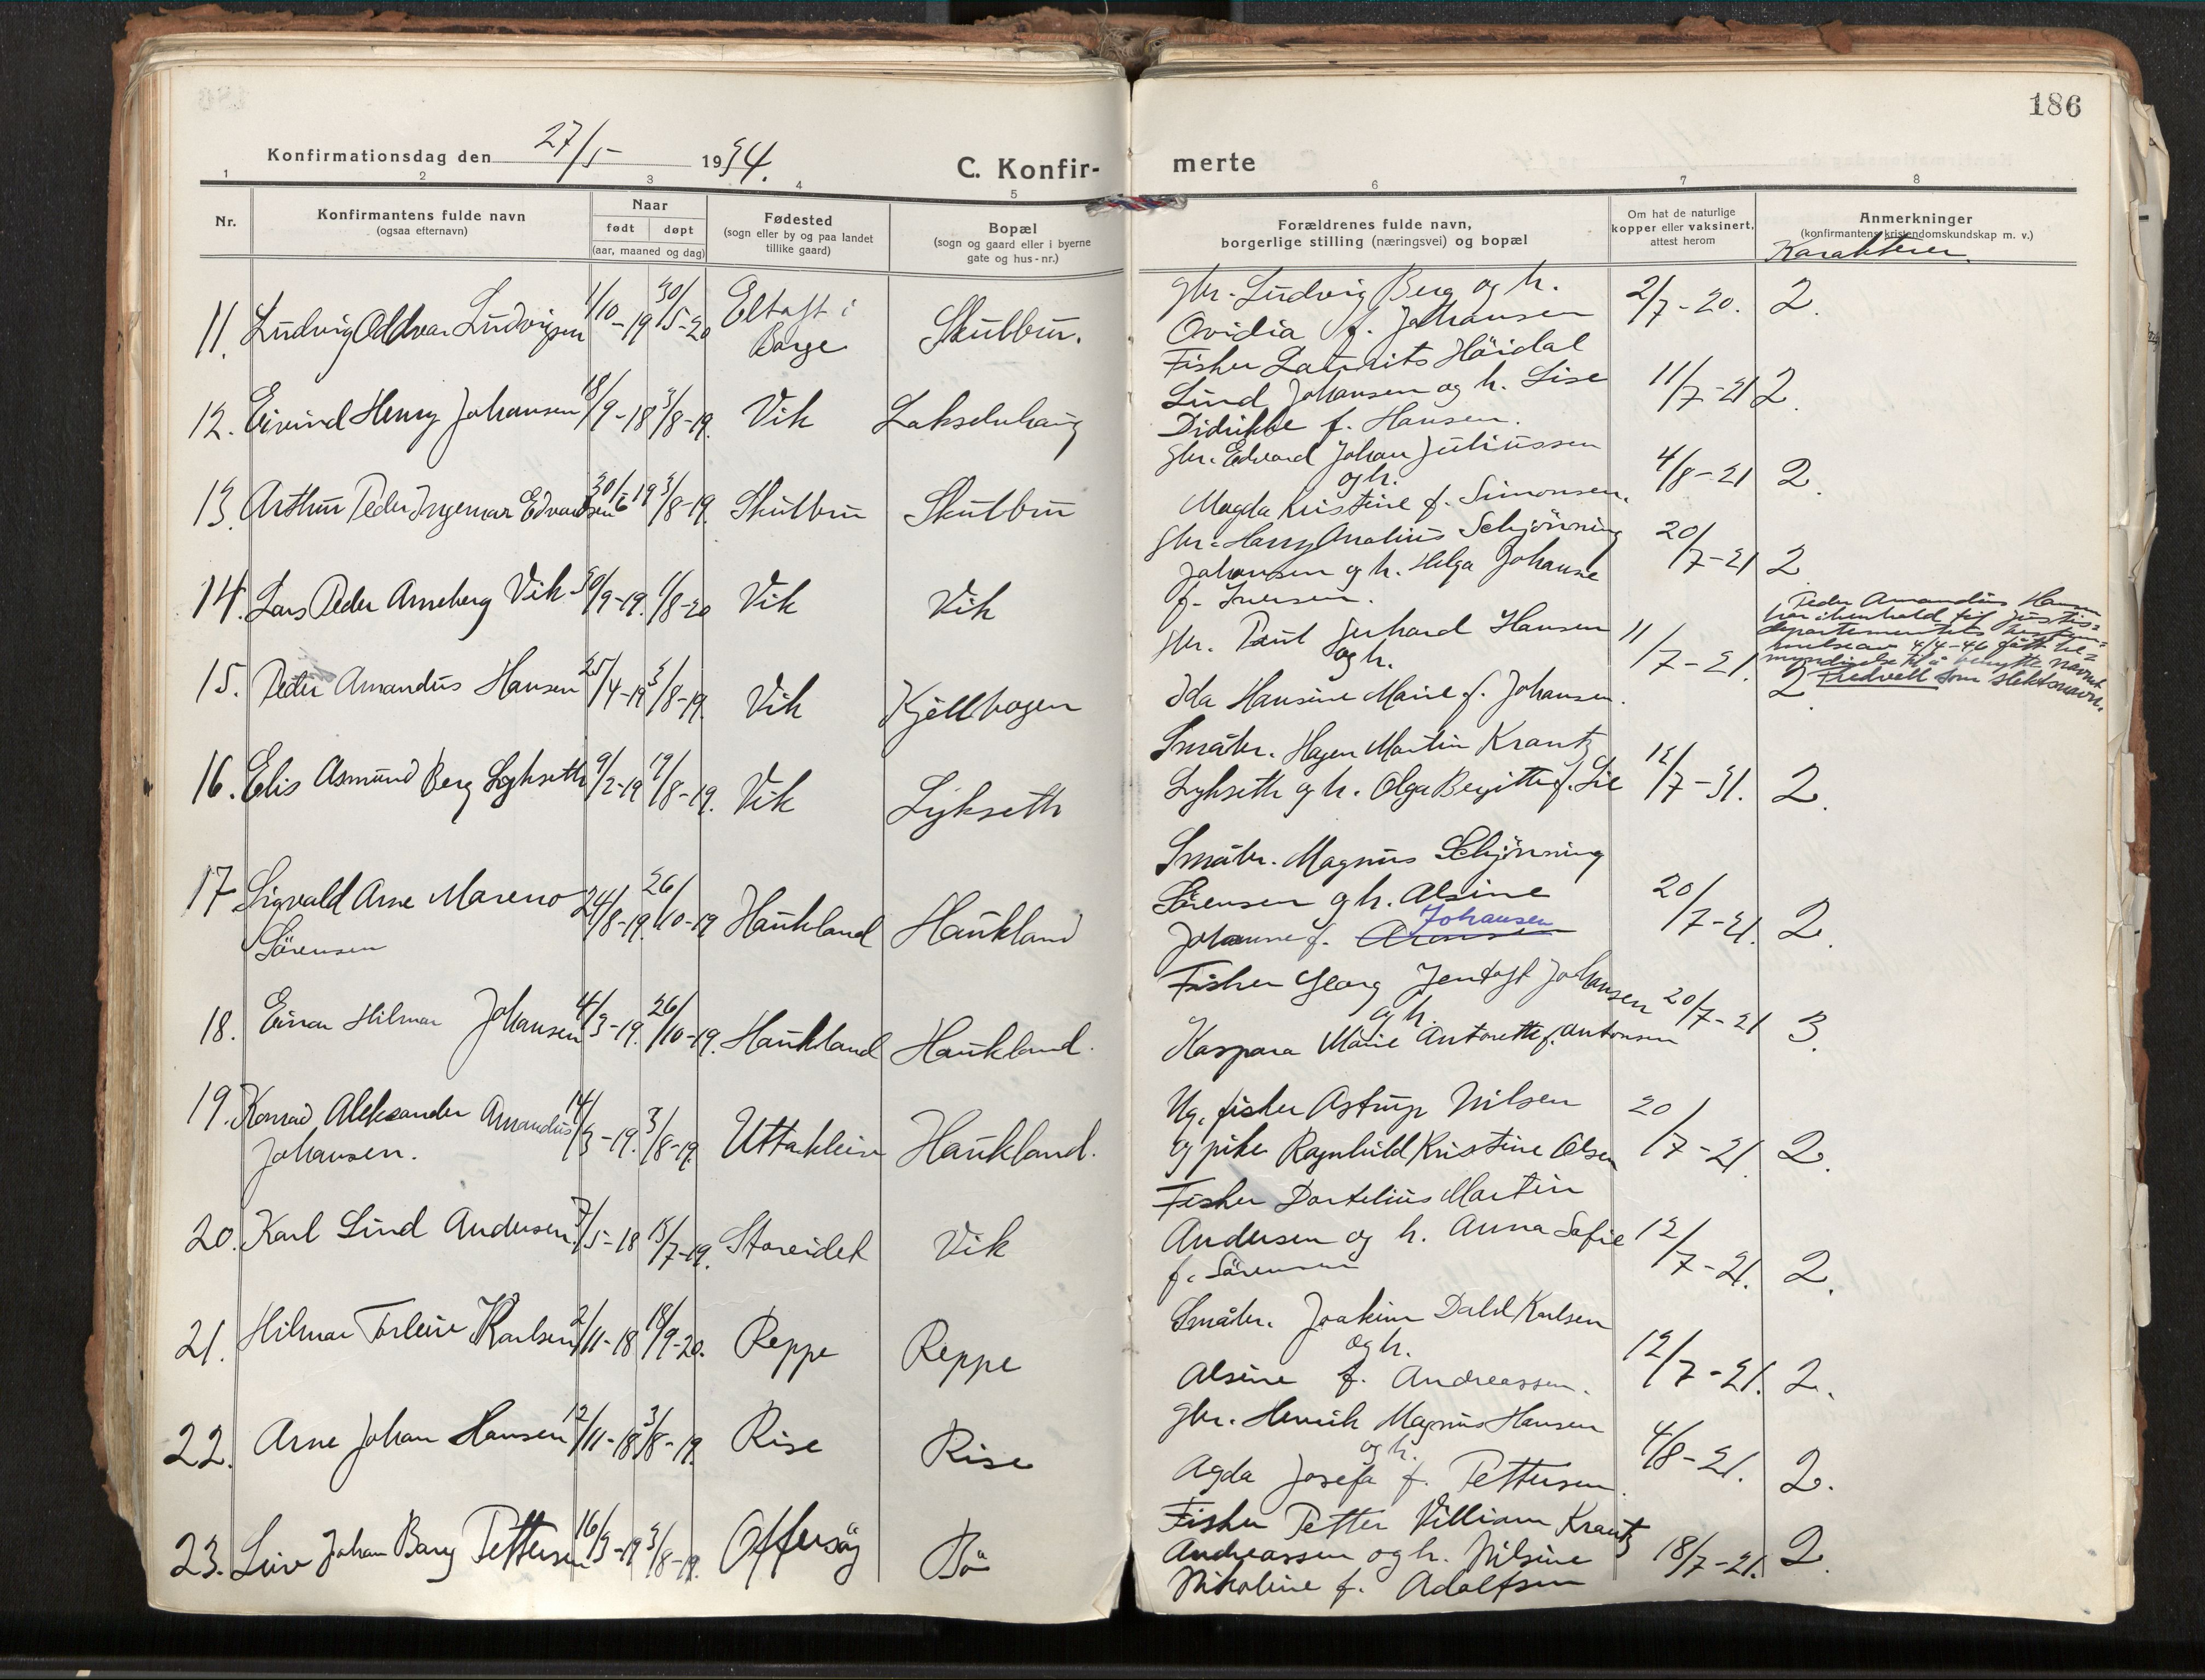 186
Konfirmationsdag den 27/5 1934.
C. Konfir-
merte
1 2 3 4 5 6 7 8
Nr.
Konfirmantens fulde navn
(ogsaa efternavn)
Naar
født døpt
(aar, maaned og dag)
Fødested
(sogn eller by og paa landet
tillike gaard)
Bopæl
(sogn og gaard eller i byerne
gate og hus-nr.)
Forældrenes fulde navn,
borgerlige stilling (næringsvei) og bopæl
Om hat de naturlige
kopper eller vaksinert,
attest herom
Anmerkninger
(konfirmantens kristendomskundskap m. v.)
Karakterer.
11. Ludvig Oddvar Ludvigsen 1/10-19 30/5-20 Eltoft i
Borge
Skulbru.
gbr. Ludvig Berg og h.
Ovidia f. Johansen
2/7-20. 2.
12. Eivind Henry Johansen 18/9-18 3/8-19. Vik
Fisker Laurits Høidal
Lind Johansen og h. Lise
Didrikke f. Hansen.
11/7-21 2.
13. Arthur Peder Ingemar Edvardsen 30/6 19 3/8-19. Skulbru Skulbru
gbr. Edvard Johan Juliussen
og h.
Magda Kristine f. Simonsen.
4/8-21 2.
14. Lars Peder Arneberg Vik 30/9-19. 1/8-20 Vik Vik
gbr. Harry Analius Schjönning
Johansen og h. Helga Johanne
f. Iversen.
20/7-21 2.
15. Peder Amandus Hansen 25/4-19 3/8-19. Vik Kjellhogen
gbr. Paul Gerhard Hansen
og h.
Ida Hansine Marie f. Johansen.
11/7-21. 2.
Peder Amandus Hansen
har i henhold til justis=
departementets bestem=
melse av 4/4-46 fått be=
myndigelse til å benytte navnet
Fredvell som slektsnavn.
16. Elis Asmund Berg Lykseth 9/2-19 17/8-19. Vik Lykseth
Småbr. Hagen Martin Krantz
Lykseth og h. Olga Bergitte f. Lie
12/7-31. 2.
17 Sigvald Arne Mareno
Sörensen
24/8-19. 26/10-19 Haukland Haukland
Småbr. Magnus Schjönning
Sörensen og h. Alsine
Johanne f. Johansen
20/7-21. 2.
18. Einar Hilmar Johansen 4/3-19. 26/10-19. Haukland Haukland.
Fisker Georg Jentoft Johansen
og h.
Kaspara Marie Antonette f. Antonsen
20/7-21 3.
19. Konrad Aleksander Amandus
Johansen.
14/3-19. 3/8-19. Uttakleiv Haukland.
Ug. fisker Astrup Nilsen
og pike Ragnhild Kristine Olsen
20/7-21. 2.
20. Karl Lind Andersen 7/5-18 13/7-19. Storeidet Vik
Fisker Dortelius Martin
Andersen og h. Anna Sofie
f. Sörensen
12/7-21. 2.
21. Hilmar Torleiv Karlsen 2/11-18 19/9-20. Reppe Reppe
Småbr. Joakim Dahl Karlsen
og h.
Alsine f. Andreassen.
12/7-21. 2.
22. Arne Johan Hansen 12/11-18 3/8-19. Rise Rise
gbr. Henrik Magnus Hansen
og h.
Agda Josefa f. Pettersen.
4/8-21. 2.
23. Leiv Johan Berg Pettersen 16/3-19 3/8-19. Offersøy Bö
Fisker Petter Villiam Krantz
Andreassen og h. Nilsine
Nikoline f. Adolfsen
18/7-21. 2.